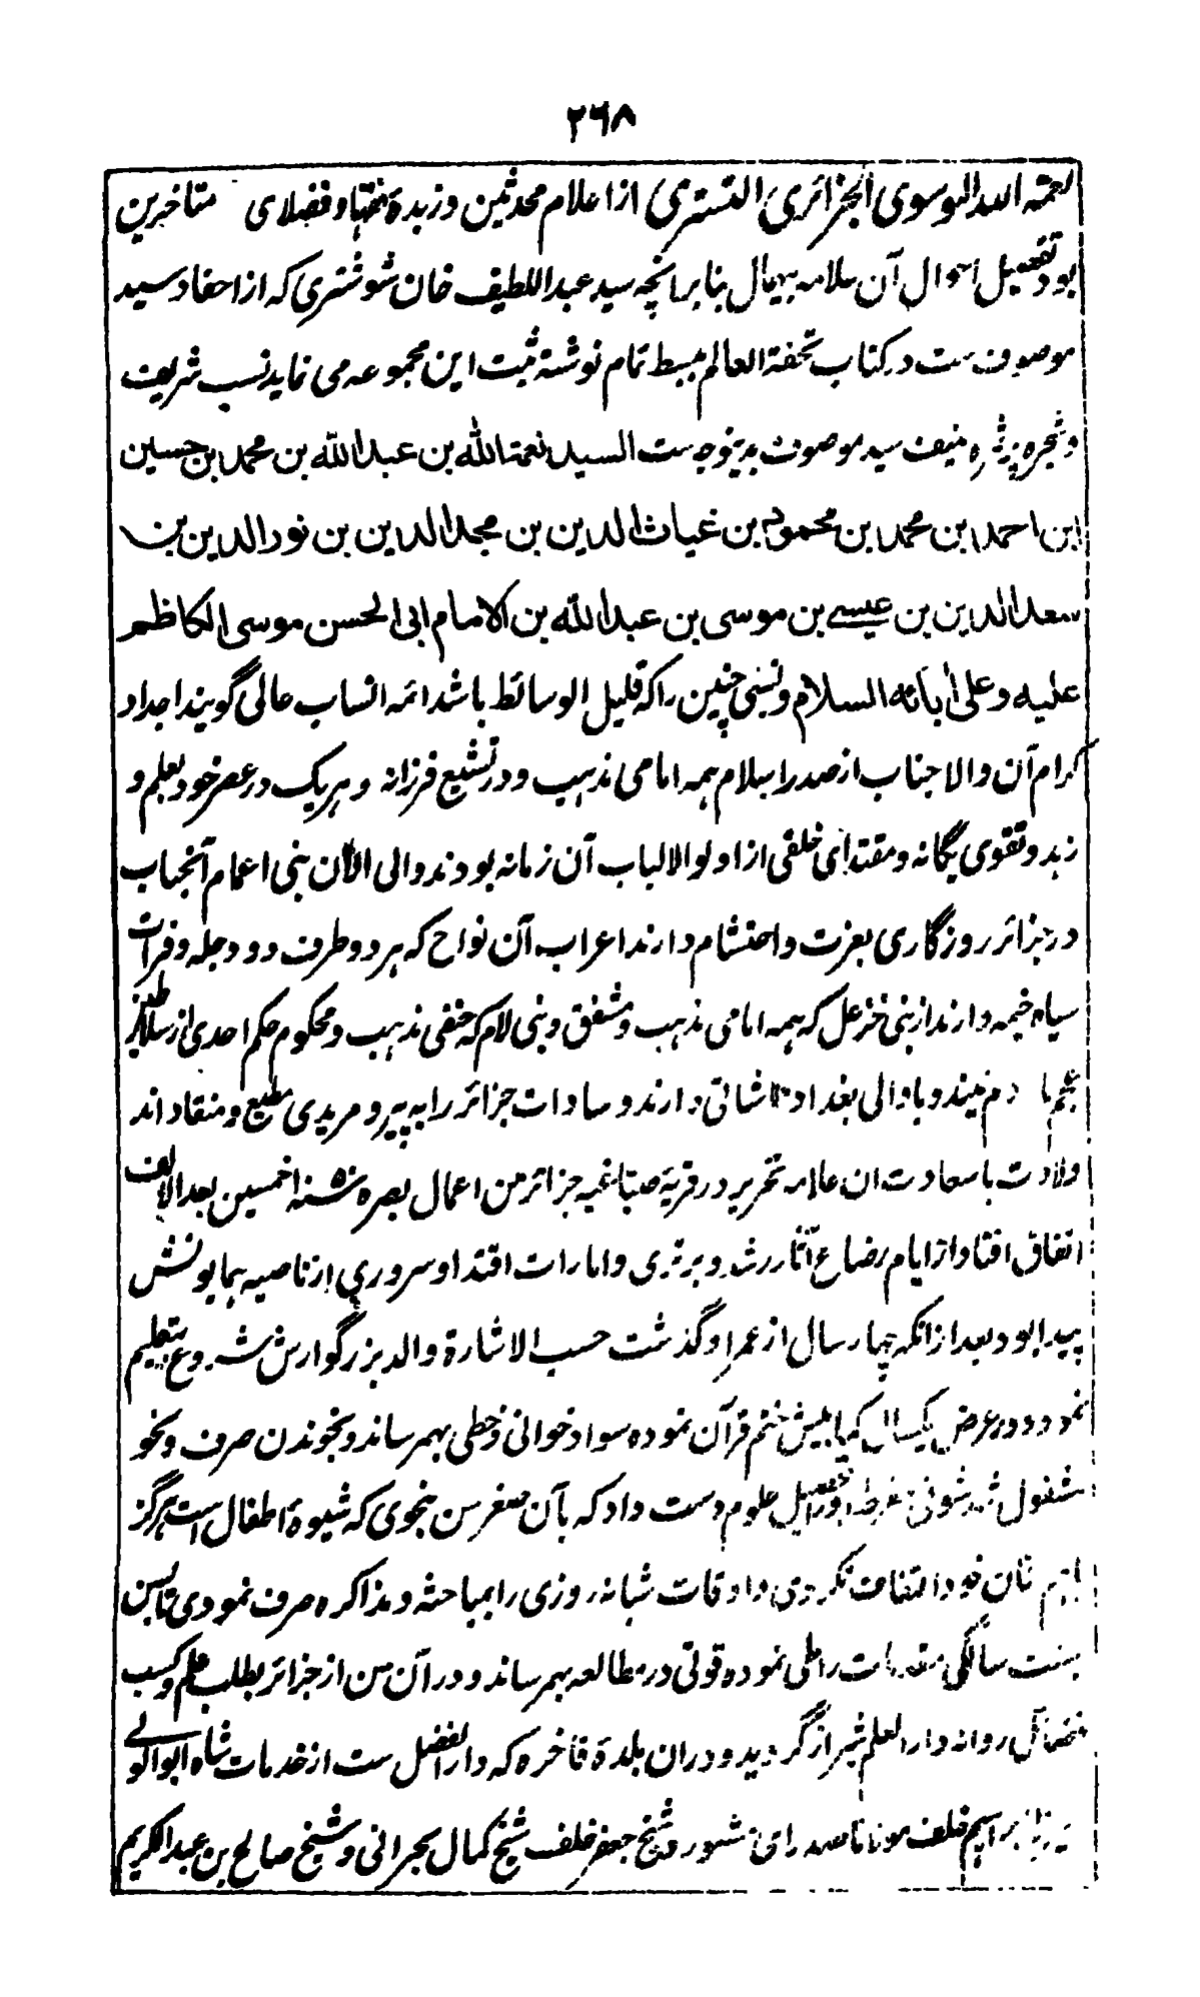 ۲۶۸
نعمة الله الموسوی الجزائری التستری از اعلام محدثین و زبدۀ فقها و فضلای متاخرین
بود تفصیل احوال آن علامه بیهمال بنا برانچه سید عبد اللطیف خان شوشتری که از احفاد سید
موصوف ست در کتاب تحفة العالم ببسط تمام نوشته ثبت این مجموعه می نماید نسب شریف
و شجره پر ثمره منیف سید موصوف بدینوجه ست السید نعمة الله بن عبد الله بن محمد بن حسین
ابن احمد ابن محمد ابن محمود بن غیاث الدین بن مجد الدین بن نور الدین بن
سعد الدین بن عیسی بن موسی بن عبد الله بن الامام ابی الحسن موسی الکاظم
علیه وعلی أبائه السلام و نسبی چنین را که قلیل الوسائط باشد ائمه انساب عالی گویند اجداد
کرام آن والا جناب از صدر اسلام همه امامی مذهب و در تشیع فرزانه و هریک در عصر خود بعلم و
زهد و تقوی یگانه و مقتدای خلقی از اولو الالباب آن زمانه بودند والی الآن بنی اعمام آنجناب
در جزائر روزگاری بعزت و احتشام دارند اعراب آن نواح که هر دو طرف رود دجله و فرات
سیاه خیمه دارند از بنی خزعل که همه امامی مذهب و مشفق و بنی لام که حنفی مذهب و محکوم حکم احدی از سلاطین
عجم یا روم نیند و با والی بغداد شانی دارند و سادات جزائر را به پیر و مریدی مطیع و منقاد اند
ولادت با سعادت ان علامه نحریر در قریه صباغیه جزائر من اعمال بصره سنه خمسین بعد الالف
اتفاق افتاد از ایام رضاع آثار رشد و برتری و امارات اقتدا و سروری از ناصیه همایونش
پیدا بود بعد ازانکه چهار سال از عمر او گذشت حسب الاشارة والد بزرگوارش شروع بتعلیم
نمود و در عرض یکسال کمابیش ختم قرآن نموده سواد خوانی و خطی بهمرساند و بخوندن صرف و نحو
مشغول شد شوقی مفرط او را بتحصیل علوم دست داد که بآن صغر سن بنحوی که شیوۀ اطفال است هرگز
بهم سنان خود التفات نکردی و اوقات شبانه روزی را بمباحثه و مذاکره صرف نمودی تا بسن
سالگی مقدمات را طی نموده قوتی در مطالعه بهمرساند و در آن سن از جزائر بطلب علم و کسب
فضائل روانه دار العلم شیراز گردید و دران بلدۀ فاخره که دار الفضل ست از خدمات شاه ابو الولی
ابراهیم خلف مولانا صدرای مشهور و شیخ جعفر خلف شیخ کمال بحرانی و شیخ صالح بن عبد الکریم